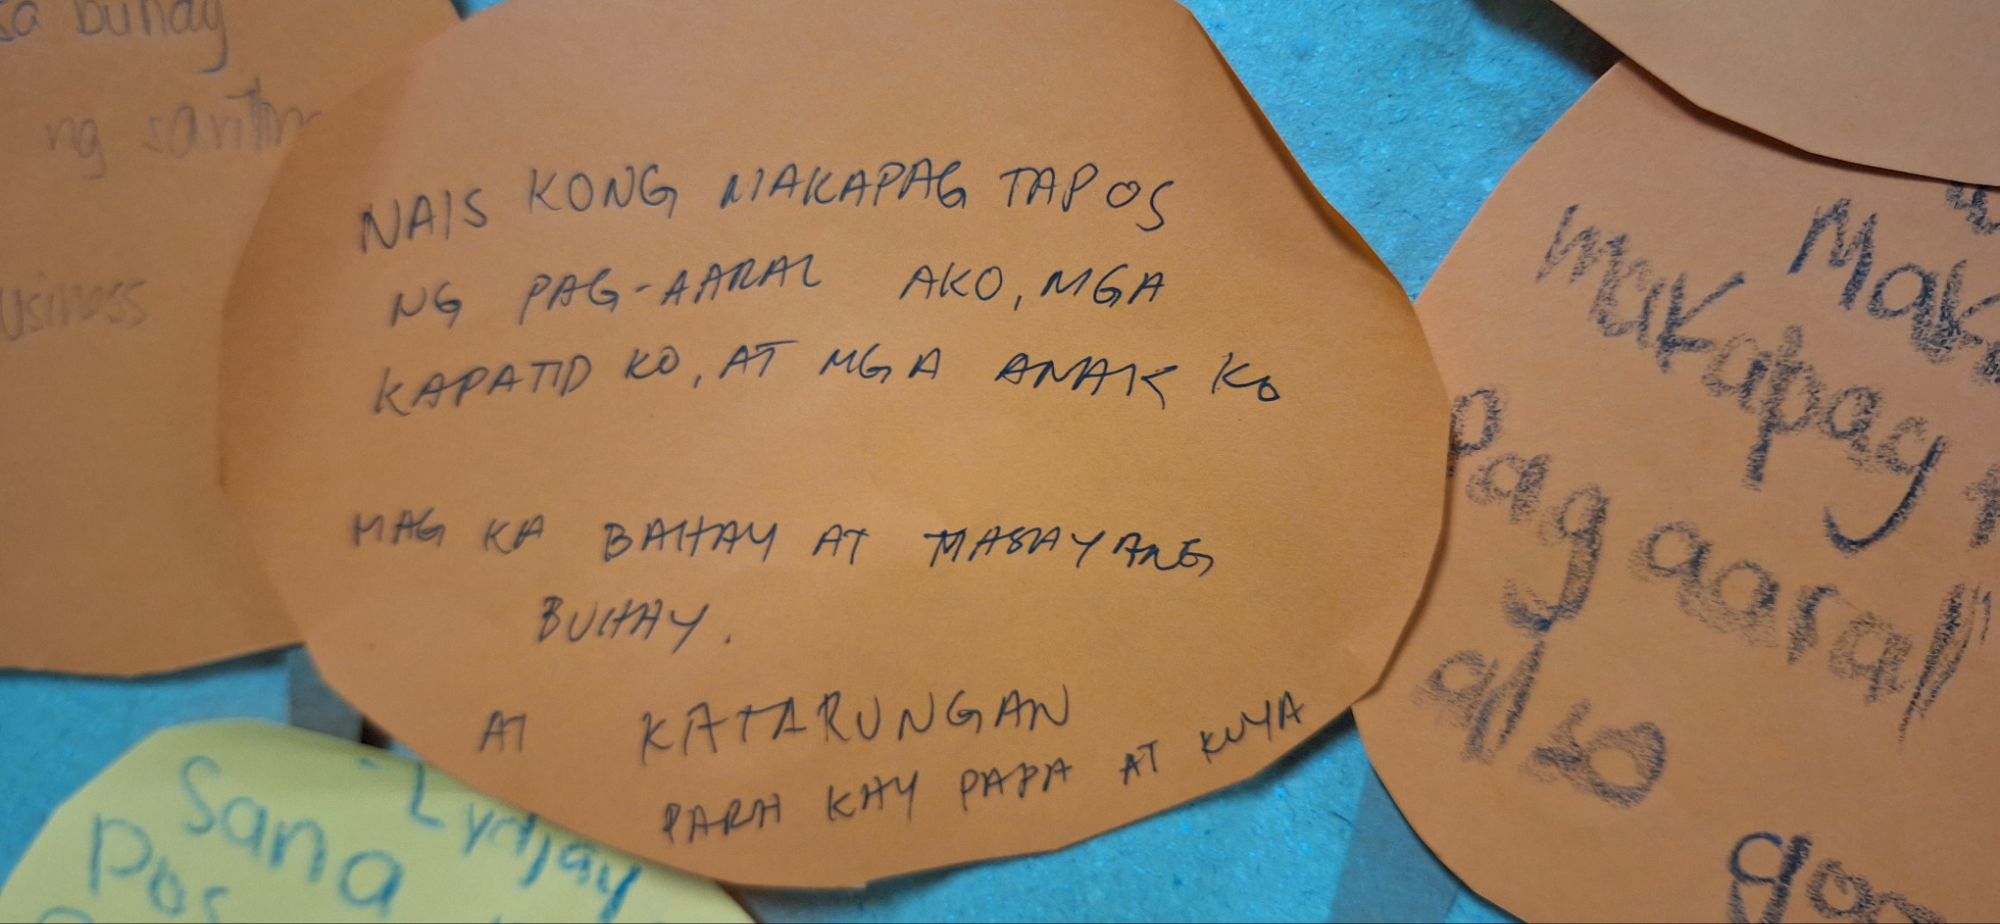 sa buhay
ng
usiness
NAIS KONG MAKAPAG TAPOS
NG PAG-AARAL AKO, MGA
KAPATID KO, AT MGA ANAK KO
MAG KA BAHAY AT MASAYANG
BUHAY.
AT KATARUNGAN
PARA KAY PAPA AT KUYA
Mak
makapag
pag aaral"
also
Sana
pos